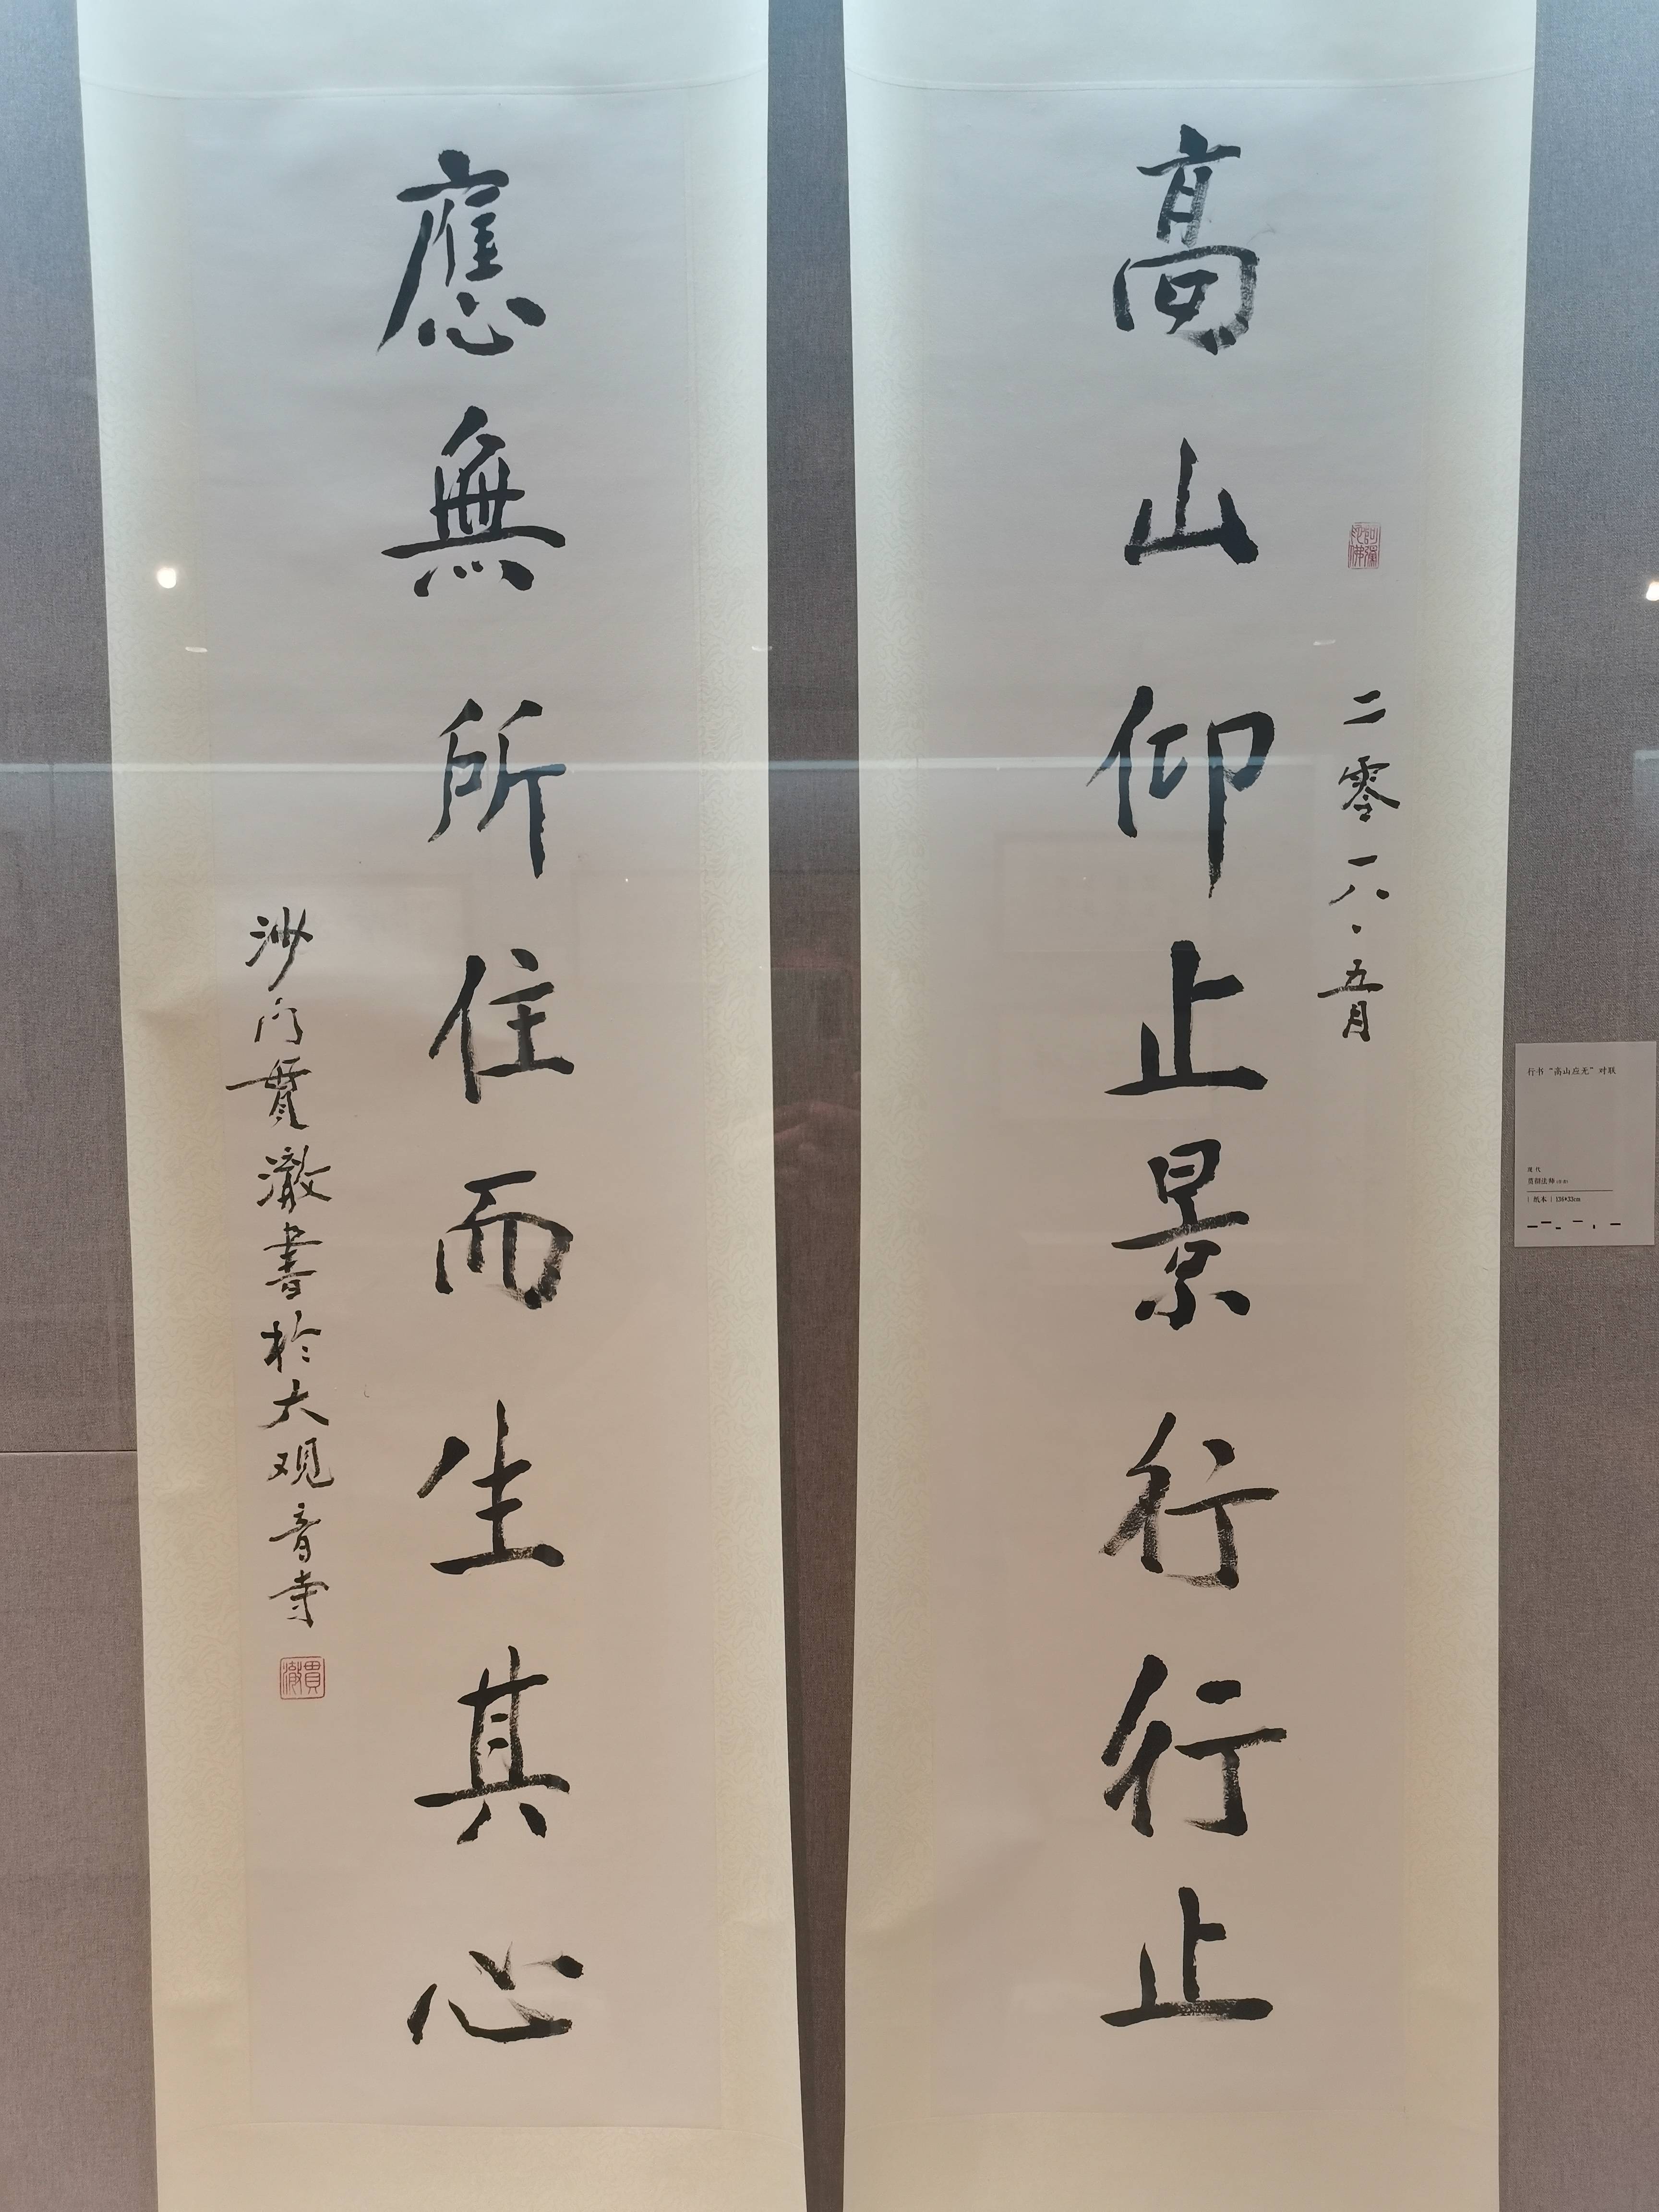 高山仰止景行行止
二零一八、五月
應無所住而生其心
沙门贯澈書於大观音寺
貫澈
行书“高山应无”对联
现代
| 纸本 | 136*33cm